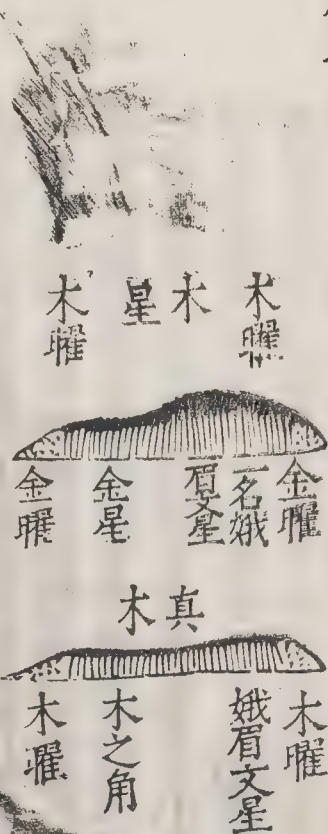 木曜
木星
木曜
金曜
一名娥
眉文星
金星
金曜
真木
木曜
娥眉文星
木之角
木曜